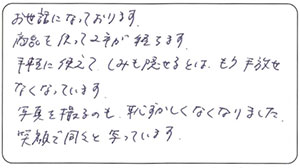 お世話になっております。
商品を使って2年が経ちます。
手軽に使えて、しみも隠せるとは、もう手放せ
なくなっています。
写真を撮るのも、恥ずかしくなくなりました。
笑顔で同々と写っています。